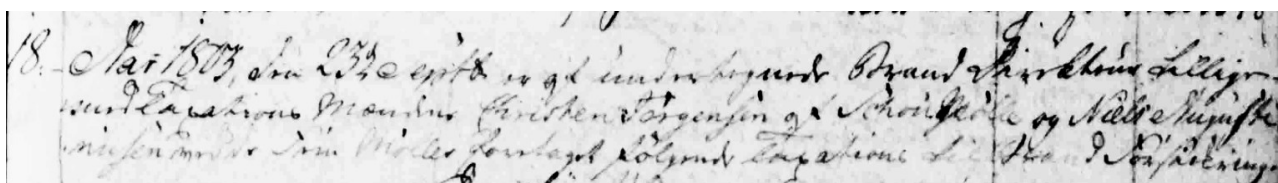 18. Aar 1803, den 23de Septb er af undertegnede Brand Direkteur tillige
med Taxations Mændene Christen Jørgensen af Schou Mølle og Niels Auguste
nusen Møller foretaget følgende Taxations til Brand Forsikkring